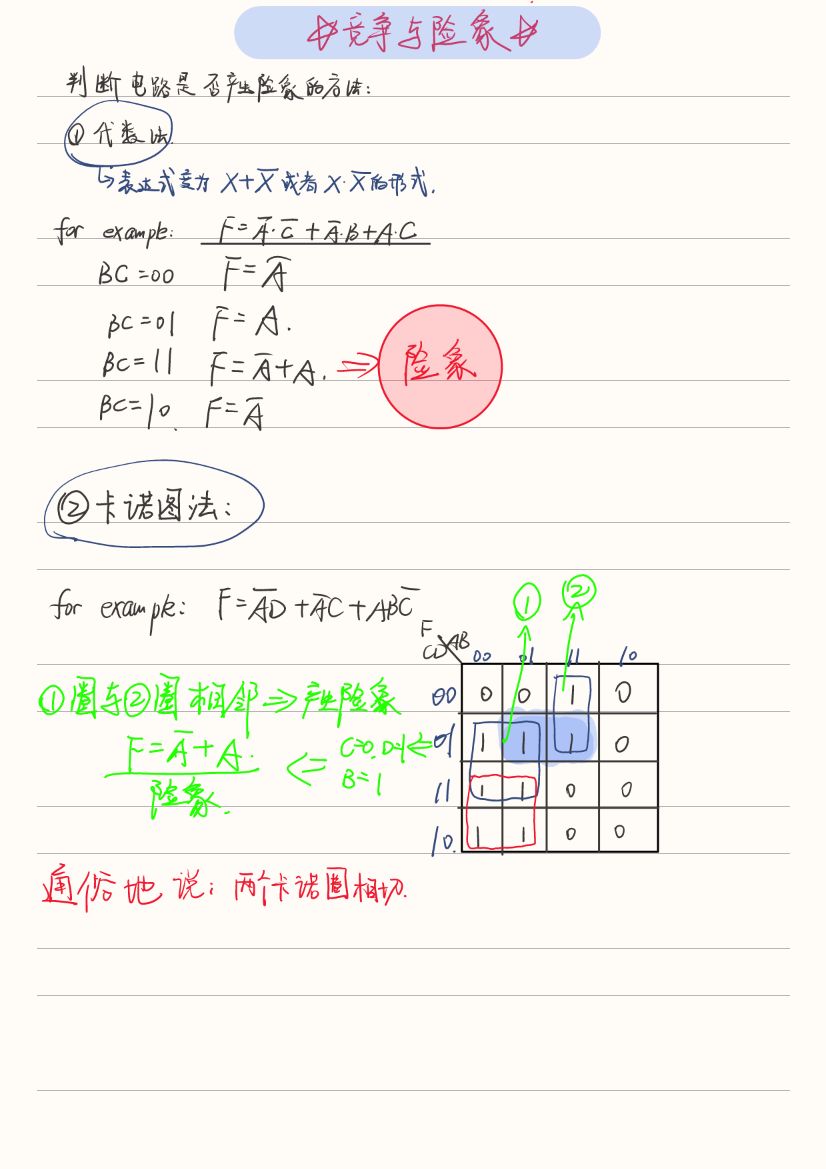 竞争与险象
判断电路是否产生险象的方法:
① 代数法.
↳表达式变为 X+X̅ 或者 X·X̅ 的形式.
for example: F=A̅·C̅+A̅·B+A·C
BC=00 F=A̅
BC=01 F=A.
BC=11 F=A̅+A. ⇒ 险象
BC=10. F=A̅
② 卡诺图法:
for example: F=A̅D+A̅C+ABC̅
① ②
F
CD AB
00 01 11 10
00 0 0 1 0
01 1 1 1 0
11 1 1 0 0
10. 1 1 0 0
①圈与②圈相邻⇒产生险象
F=A̅+A. ⇐ C=0, D=1 ⇐
B=1
险象.
通俗地说: 两个卡诺圈相切.